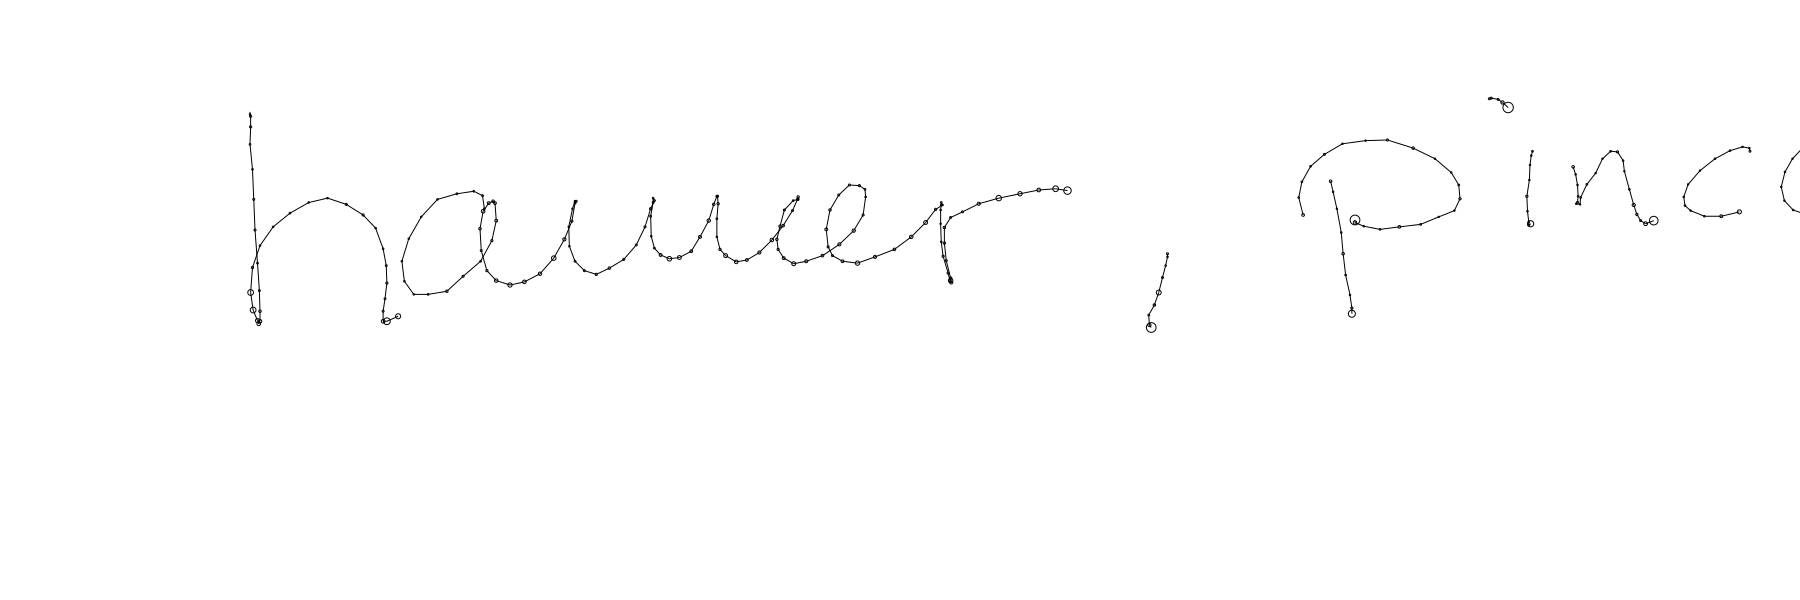 hammer, pinc